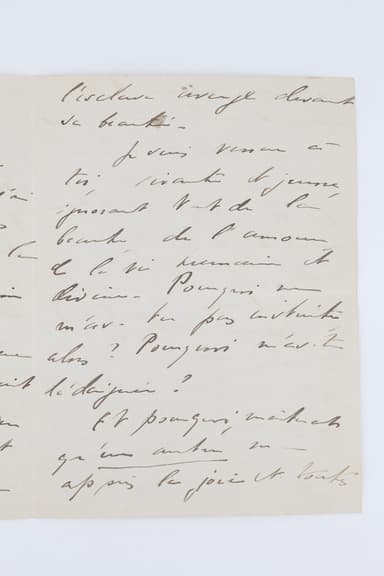 l'esclave aveugle devant
sa beauté -
Je suis venue à
toi, vivante et jeune,
ignorant tout de la
beauté de l'amour,
de la vie humaine et
divine. Pourquoi ne
m'as-tu pas instruite
alors ? Pourquoi m'as-tu
dédaignée ?
Et pourquoi, maintenant
qu'un autre m'a
appris la joie et toutes